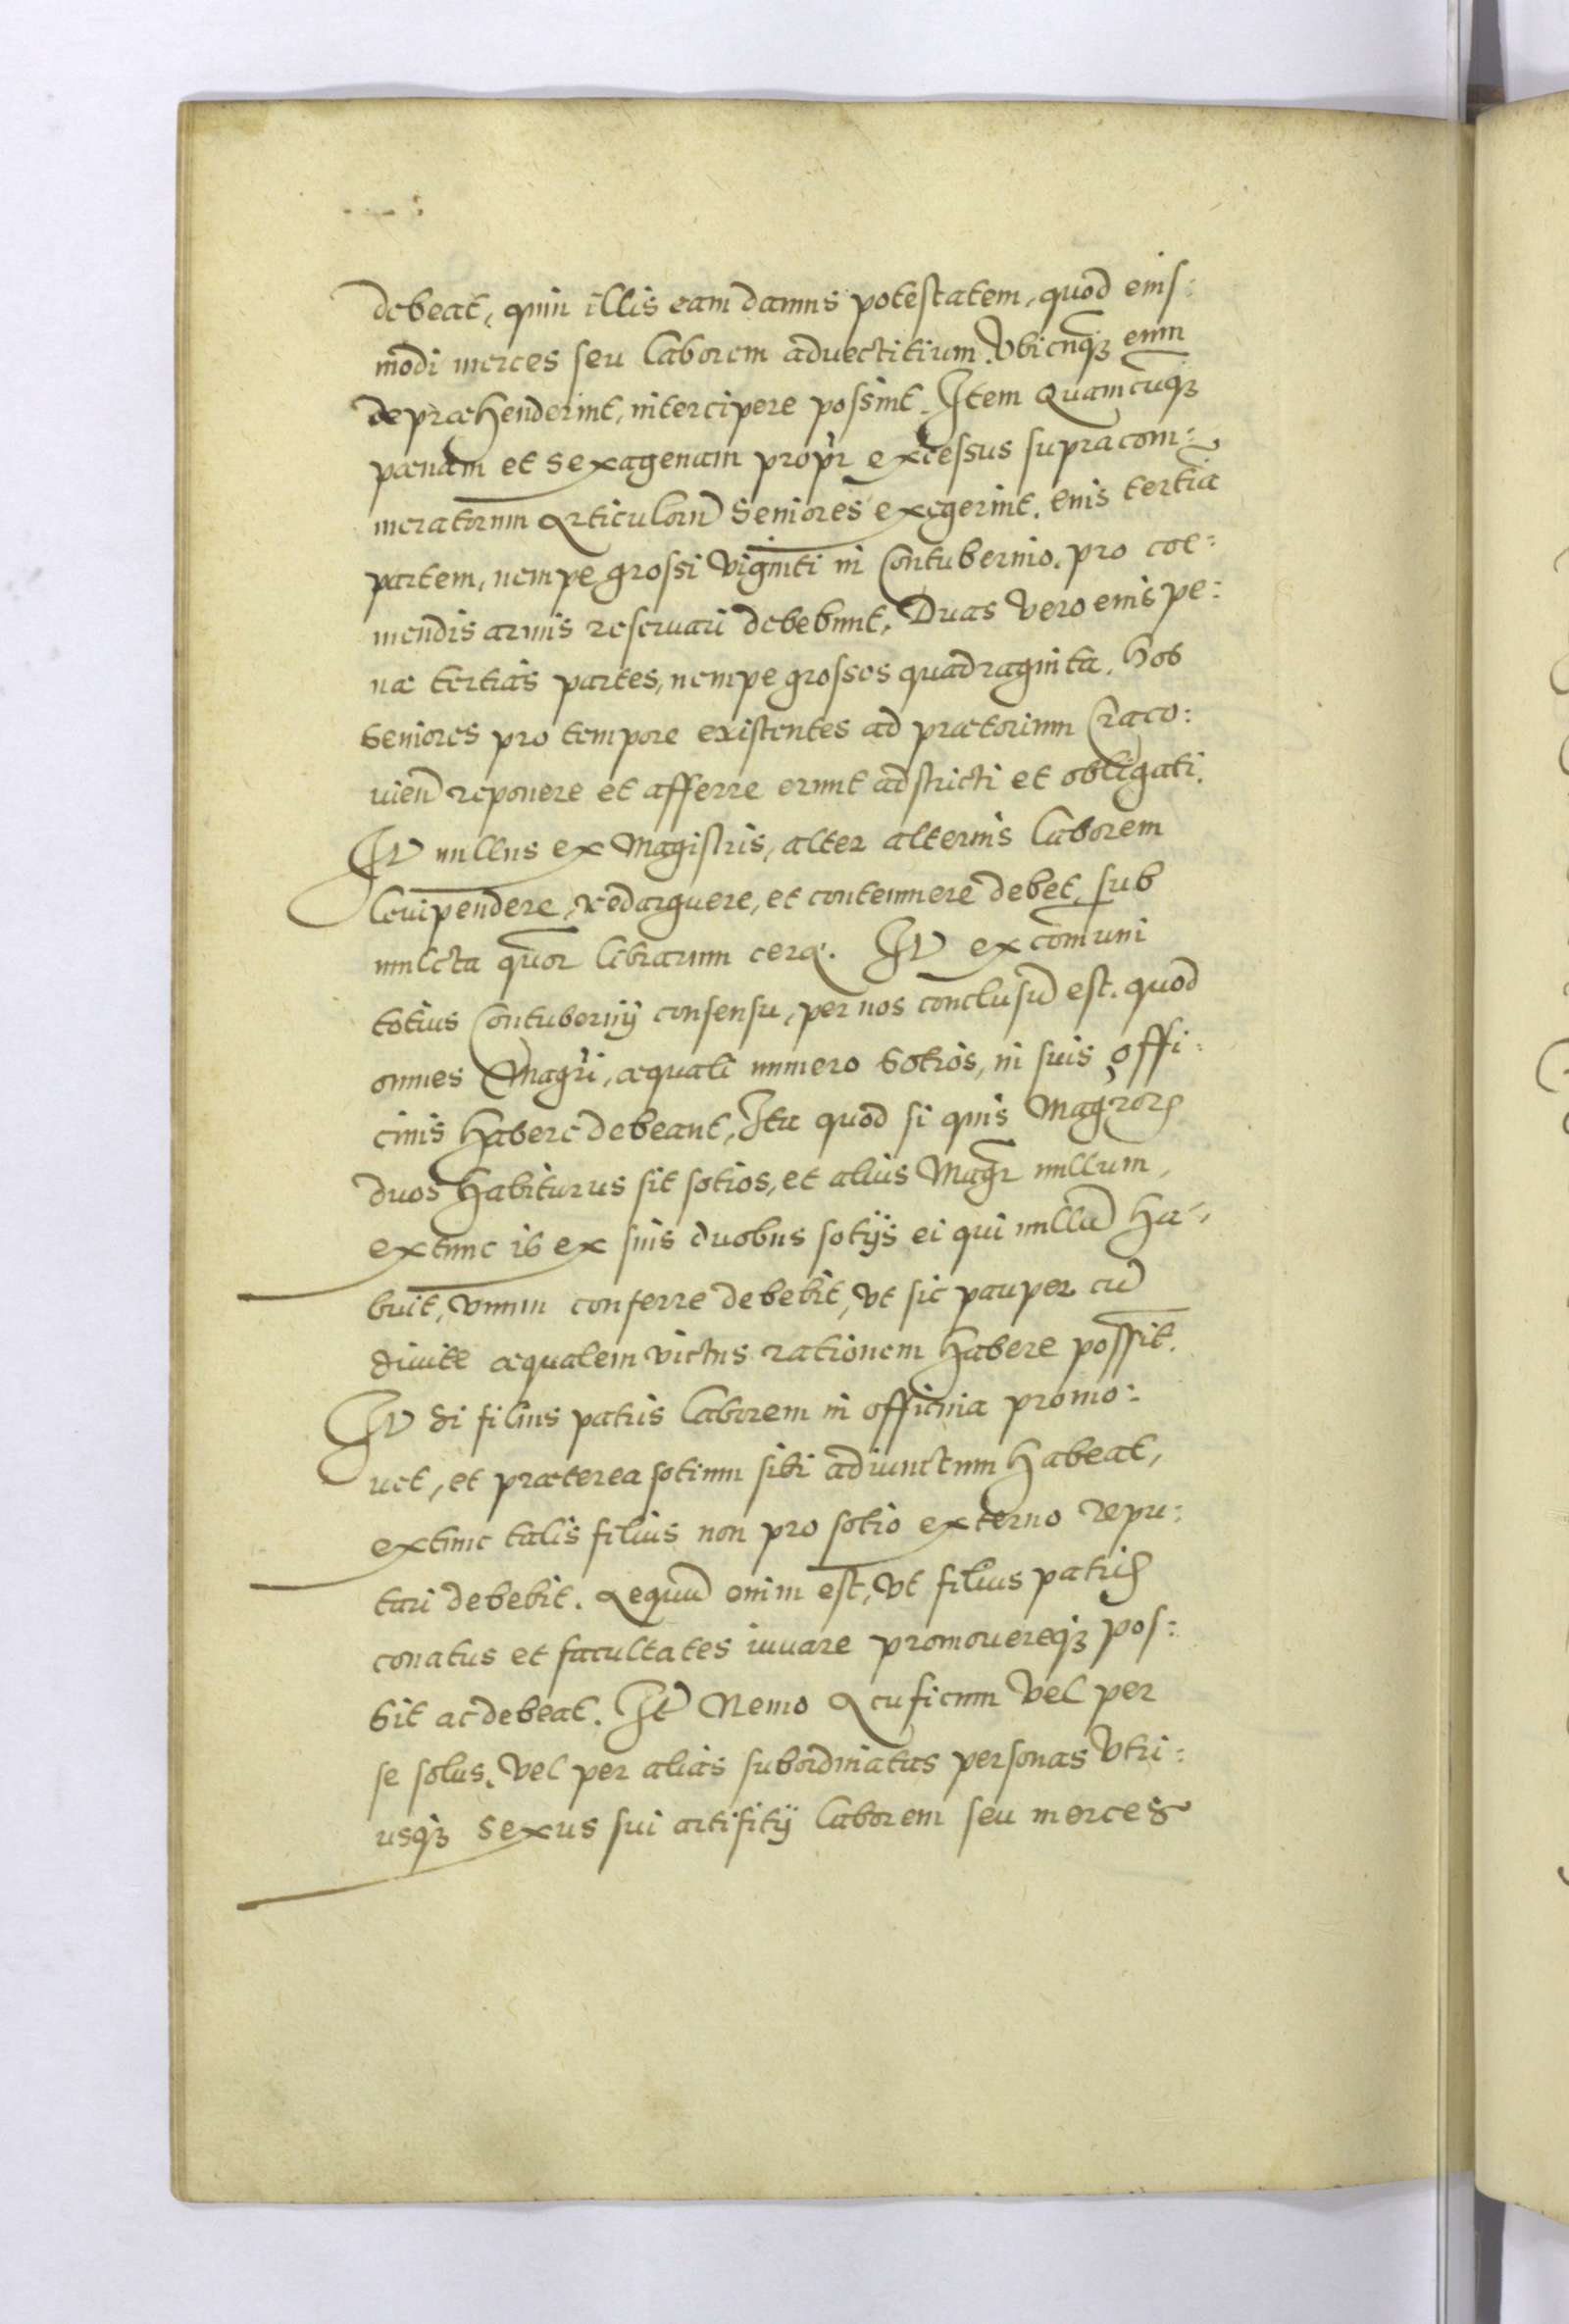 debeat, quin illis eam damus potestatem, quod eius:
modi merces seu laborem advectitium. Vbicūq3 eum
depræhenderint, intercipere possint. Item Quamcūq3
pænam et sexagenam propr̄ excessus supracom:
meratorum Articulorū Seniores exegerint. eius tertia
partem, nempe grossi viginti in Contubernio, pro coe:
mendis armis reservari debebunt, Duas vero eius pe:
næ tertias partes, nempe grossos quadraginta, hos
Seniores pro tempore existentes ad prætorium Craco:
vien̄ reponere et afferre erunt adstricti et obligati.
Itē nullus ex Magistris, alter alterius laborem
levipendere, redarguere, et contemnere debet, sub
mulcta quōr librarum ceræ. Itē ex com̄uni
totius Contubernij consensu, per nos conclusū est. quod
omnes Magrī, æquali numero Sotios, in suis offi:
cinis habere debeant, Ita quod si quis Magrōrꝝ
duos habiturus sit sotios, et alius Magr̄ nullum,
extunc is ex suis duobus sotijs ei qui nullū ha:
buit, vnum conferre debebit, vt sic pauper cū
divite æqualem victus rationem habere possit.
Itē Si filius patris laborem in officina promo:
vet, et præterea sotium sibi adiunctum habeat,
extunc talis filius non pro sotio externo repu:
tari debebit. Aequū enim est, vt filius patris
conatus et facultates iuvare promovereq3 pos:
sit ac debeat. Itē Nemo Acuficum vel per
se solus, vel per alias subordinatas personas vtri:
usq3 sexus sui artifitij laborem seu merces